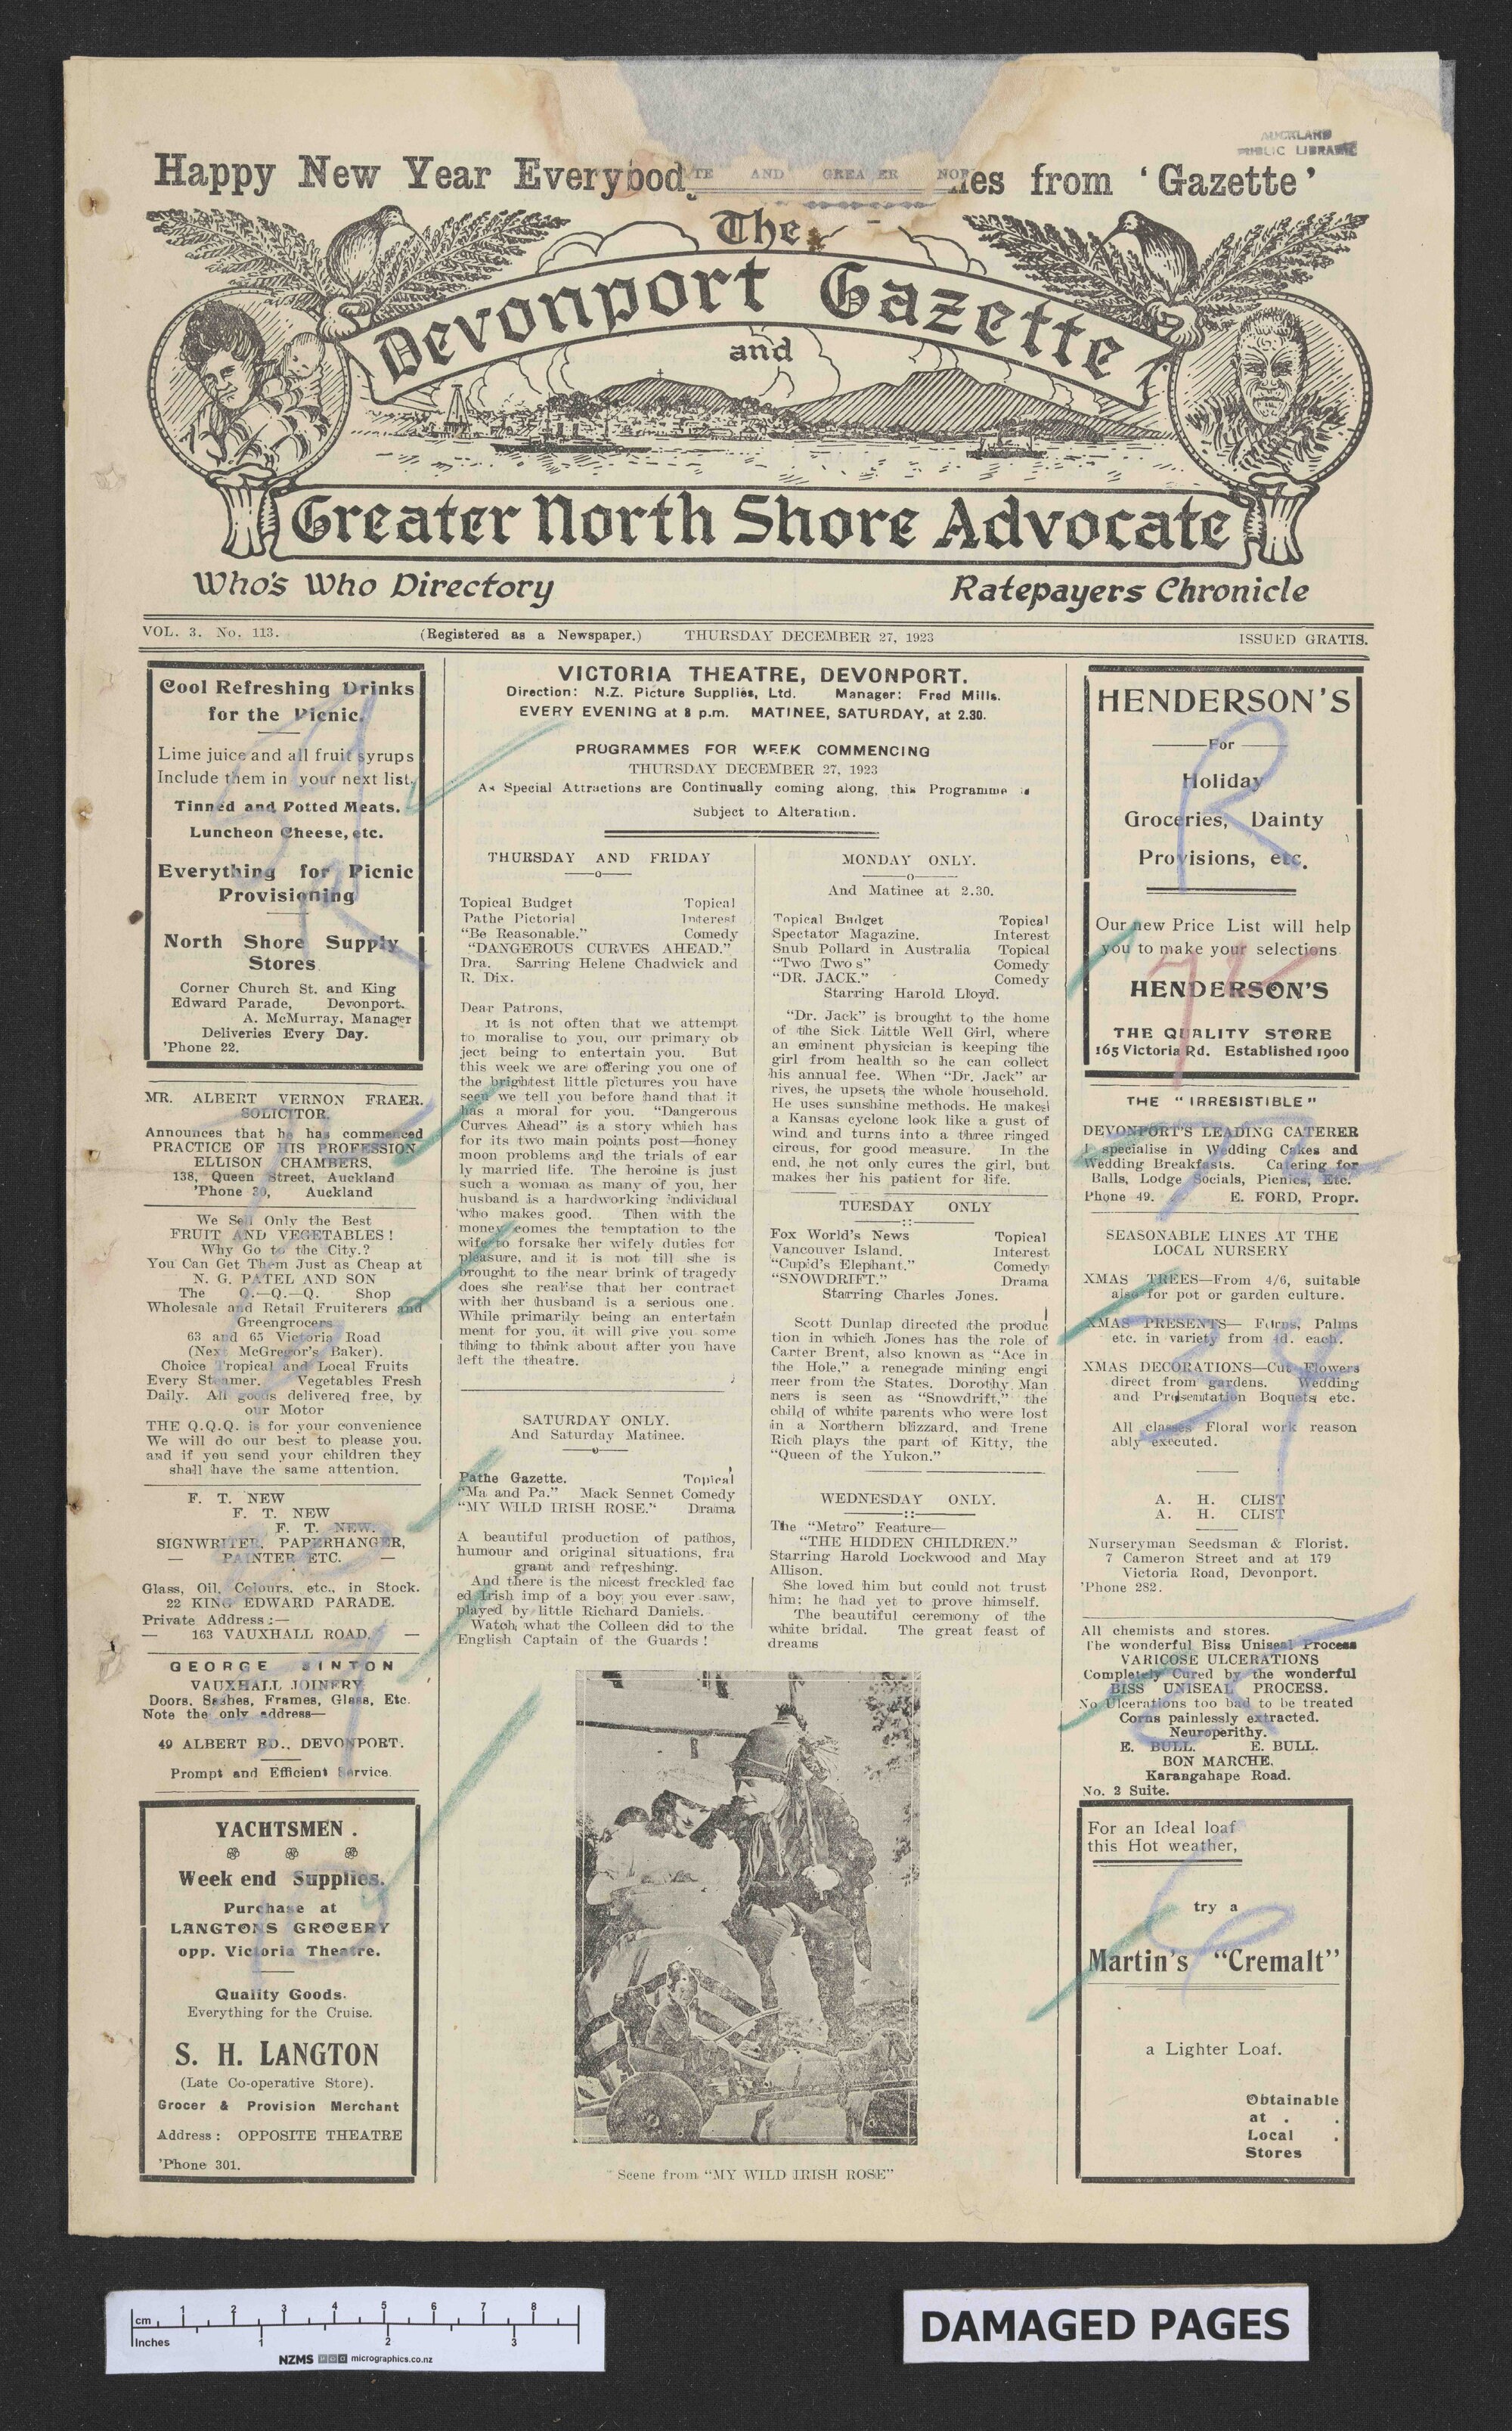 AUCKLAND
PUBLIC LIBRARIE
Happy New Year Everybod
TE AND GREATER NOR
es from ‘Gazette’
The
Devonport Gazette
and
Greater North Shore Advocate
Who's Who Directory
Ratepayers Chronicle
VOL. 3. No. 113.
(Registered as a Newspaper.)
THURSDAY DECEMBER 27, 1923
ISSUED GRATIS.
Cool Refreshing Drinks
for the Picnic.
Lime juice and all fruit syrups
Include them in your next list.
Tinned and Potted Meats.
Luncheon Cheese, etc.
Everything for Picnic
Provisioning
North Shore Supply
Stores
Corner Church St. and King
Edward Parade, Devonport.
A. McMurray, Manager
Deliveries Every Day.
'Phone 22.
MR. ALBERT VERNON FRAER.
SOLICITOR.
Announces that he has commenced
PRACTICE OF HIS PROFESSION
ELLISON CHAMBERS,
138, Queen Street, Auckland
'Phone 30, Auckland
We Sell Only the Best
FRUIT AND VEGETABLES!
Why Go to the City.?
You Can Get Them Just as Cheap at
N. G. PATEL AND SON
The Q.—Q.—Q. Shop
Wholesale and Retail Fruiterers and
Greengrocers
63 and 65 Victoria Road
(Next McGregor's Baker).
Choice Tropical and Local Fruits
Every Steamer. Vegetables Fresh
Daily. All goods delivered free, by
our Motor
THE Q.Q.Q. is for your convenience
We will do our best to please you.
and if you send your children they
shall have the same attention.
F. T. NEW
F. T. NEW
F. T. NEW.
SIGNWRITER, PAPERHANGER,
— PAINTER ETC. —
Glass, Oil, Colours, etc., in Stock.
22 KING EDWARD PARADE.
Private Address:—
— 163 VAUXHALL ROAD. —
GEORGE SINTON
VAUXHALL JOINERY
Doors, Sashes, Frames, Glass, Etc.
Note the only address—
49 ALBERT RD., DEVONPORT.
Prompt and Efficient Service.
YACHTSMEN.
Week end Supplies.
Purchase at
LANGTONS GROCERY
opp. Victoria Theatre.
Quality Goods.
Everything for the Cruise.
S. H. LANGTON
(Late Co-operative Store).
Grocer & Provision Merchant
Address: OPPOSITE THEATRE
'Phone 301.
VICTORIA THEATRE, DEVONPORT.
Direction: N.Z. Picture Supplies, Ltd. Manager: Fred Mills.
EVERY EVENING at 8 p.m. MATINEE, SATURDAY, at 2.30.
PROGRAMMES FOR WEEK COMMENCING
THURSDAY DECEMBER 27, 1923
As Special Attractions are Continually coming along, this Programme is
Subject to Alteration.
THURSDAY AND FRIDAY
Topical Budget Topical
Pathe Pictorial Interest
“Be Reasonable.” Comedy
“DANGEROUS CURVES AHEAD.”
Dra. Sarring Helene Chadwick and
R. Dix.
Dear Patrons,
It is not often that we attempt
to moralise to you, our primary ob
ject being to entertain you. But
this week we are offering you one of
the brightest little pictures you have
seen we tell you before hand that it
has a moral for you. “Dangerous
Curves Ahead” is a story which has
for its two main points post—honey
moon problems and the trials of ear
ly married life. The heroine is just
such a woman as many of you, her
husband is a hardworking individual
who makes good. Then with the
money comes the temptation to the
wife to forsake her wifely duties for
pleasure, and it is not till she is
brought to the near brink of tragedy
does she realise that her contract
with her husband is a serious one.
While primarily being an entertain
ment for you, it will give you some
thing to think about after you have
left the theatre.
SATURDAY ONLY.
And Saturday Matinee.
Pathe Gazette. Topical
“Ma and Pa.” Mack Sennet Comedy
“MY WILD IRISH ROSE.“ Drama
A beautiful production of pathos,
humour and original situations, fra
grant and refreshing.
And there is the nicest freckled fac
ed Irish imp of a boy you ever saw,
played by little Richard Daniels.
Watch what the Colleen did to the
English Captain of the Guards!
MONDAY ONLY.
And Matinee at 2.30.
Topical Budget Topical
Spectator Magazine. Interest
Snub Pollard in Australia Topical
“Two Two s” Comedy
“DR. JACK.” Comedy
Starring Harold Lloyd.
“Dr. Jack” is brought to the home
of the Sick Little Well Girl, where
an eminent physician is keeping the
girl from health so he can collect
his annual fee. When “Dr. Jack” ar
rives, he upsets the whole household.
He uses sunshine methods. He makes
a Kansas cyclone look like a gust of
wind and turns into a three ringed
circus, for good measure. In the
end, he not only cures the girl, but
makes her his patient for life.
TUESDAY ONLY
Fox World's News Topical
Vancouver Island. Interest
“Cupid's Elephant.” Comedy
“SNOWDRIFT.” Drama
Starring Charles Jones.
Scott Dunlap directed the produc
tion in which Jones has the role of
Carter Brent, also known as “Ace in
the Hole,” a renegade mining engi
neer from the States. Dorothy Man
ners is seen as “Snowdrift,” the
child of white parents who were lost
in a Northern blizzard, and Irene
Rich plays the part of Kitty, the
“Queen of the Yukon.”
WEDNESDAY ONLY.
The “Metro” Feature—
“THE HIDDEN CHILDREN.”
Starring Harold Lockwood and May
Allison.
She loved him but could not trust
him; he had yet to prove himself.
The beautiful ceremony of the
white bridal. The great feast of
dreams
Scene from “MY WILD IRISH ROSE”
HENDERSON'S
For
Holiday
Groceries, Dainty
Provisions, etc.
Our new Price List will help
you to make your selections
HENDERSON'S
THE QUALITY STORE
165 Victoria Rd. Established 1900
THE “IRRESISTIBLE”
DEVONPORT'S LEADING CATERER
I specialise in Wedding Cakes and
Wedding Breakfasts. Catering for
Balls, Lodge Socials, Picnics, Etc.
Phone 49. E. FORD, Propr.
SEASONABLE LINES AT THE
LOCAL NURSERY
XMAS TREES—From 4/6, suitable
also for pot or garden culture.
XMAS PRESENTS— Ferns, Palms
etc. in variety from 4d. each.
XMAS DECORATIONS—Cut Flowers
direct from gardens. Wedding
and Presentation Boquets etc.
All classes Floral work reason
ably executed.
A. H. CLIST
A. H. CLIST
Nurseryman Seedsman & Florist.
7 Cameron Street and at 179
Victoria Road, Devonport.
'Phone 282.
All chemists and stores.
The wonderful Biss Uniseal Process
VARICOSE ULCERATIONS
Completely Cured by the wonderful
BISS UNISEAL PROCESS.
No Ulcerations too bad to be treated
Corns painlessly extracted.
Neuroperithy.
E. BULL. E. BULL.
BON MARCHE,
Karangahape Road.
No. 2 Suite.
For an Ideal loaf
this Hot weather,
try a
Martin's “Cremalt”
a Lighter Loaf.
Obtainable
at .
Local
Stores
cm 1 2 3 4 5 6 7 8
Inches 1 2 3
NZMS micrographics.co.nz
DAMAGED PAGES